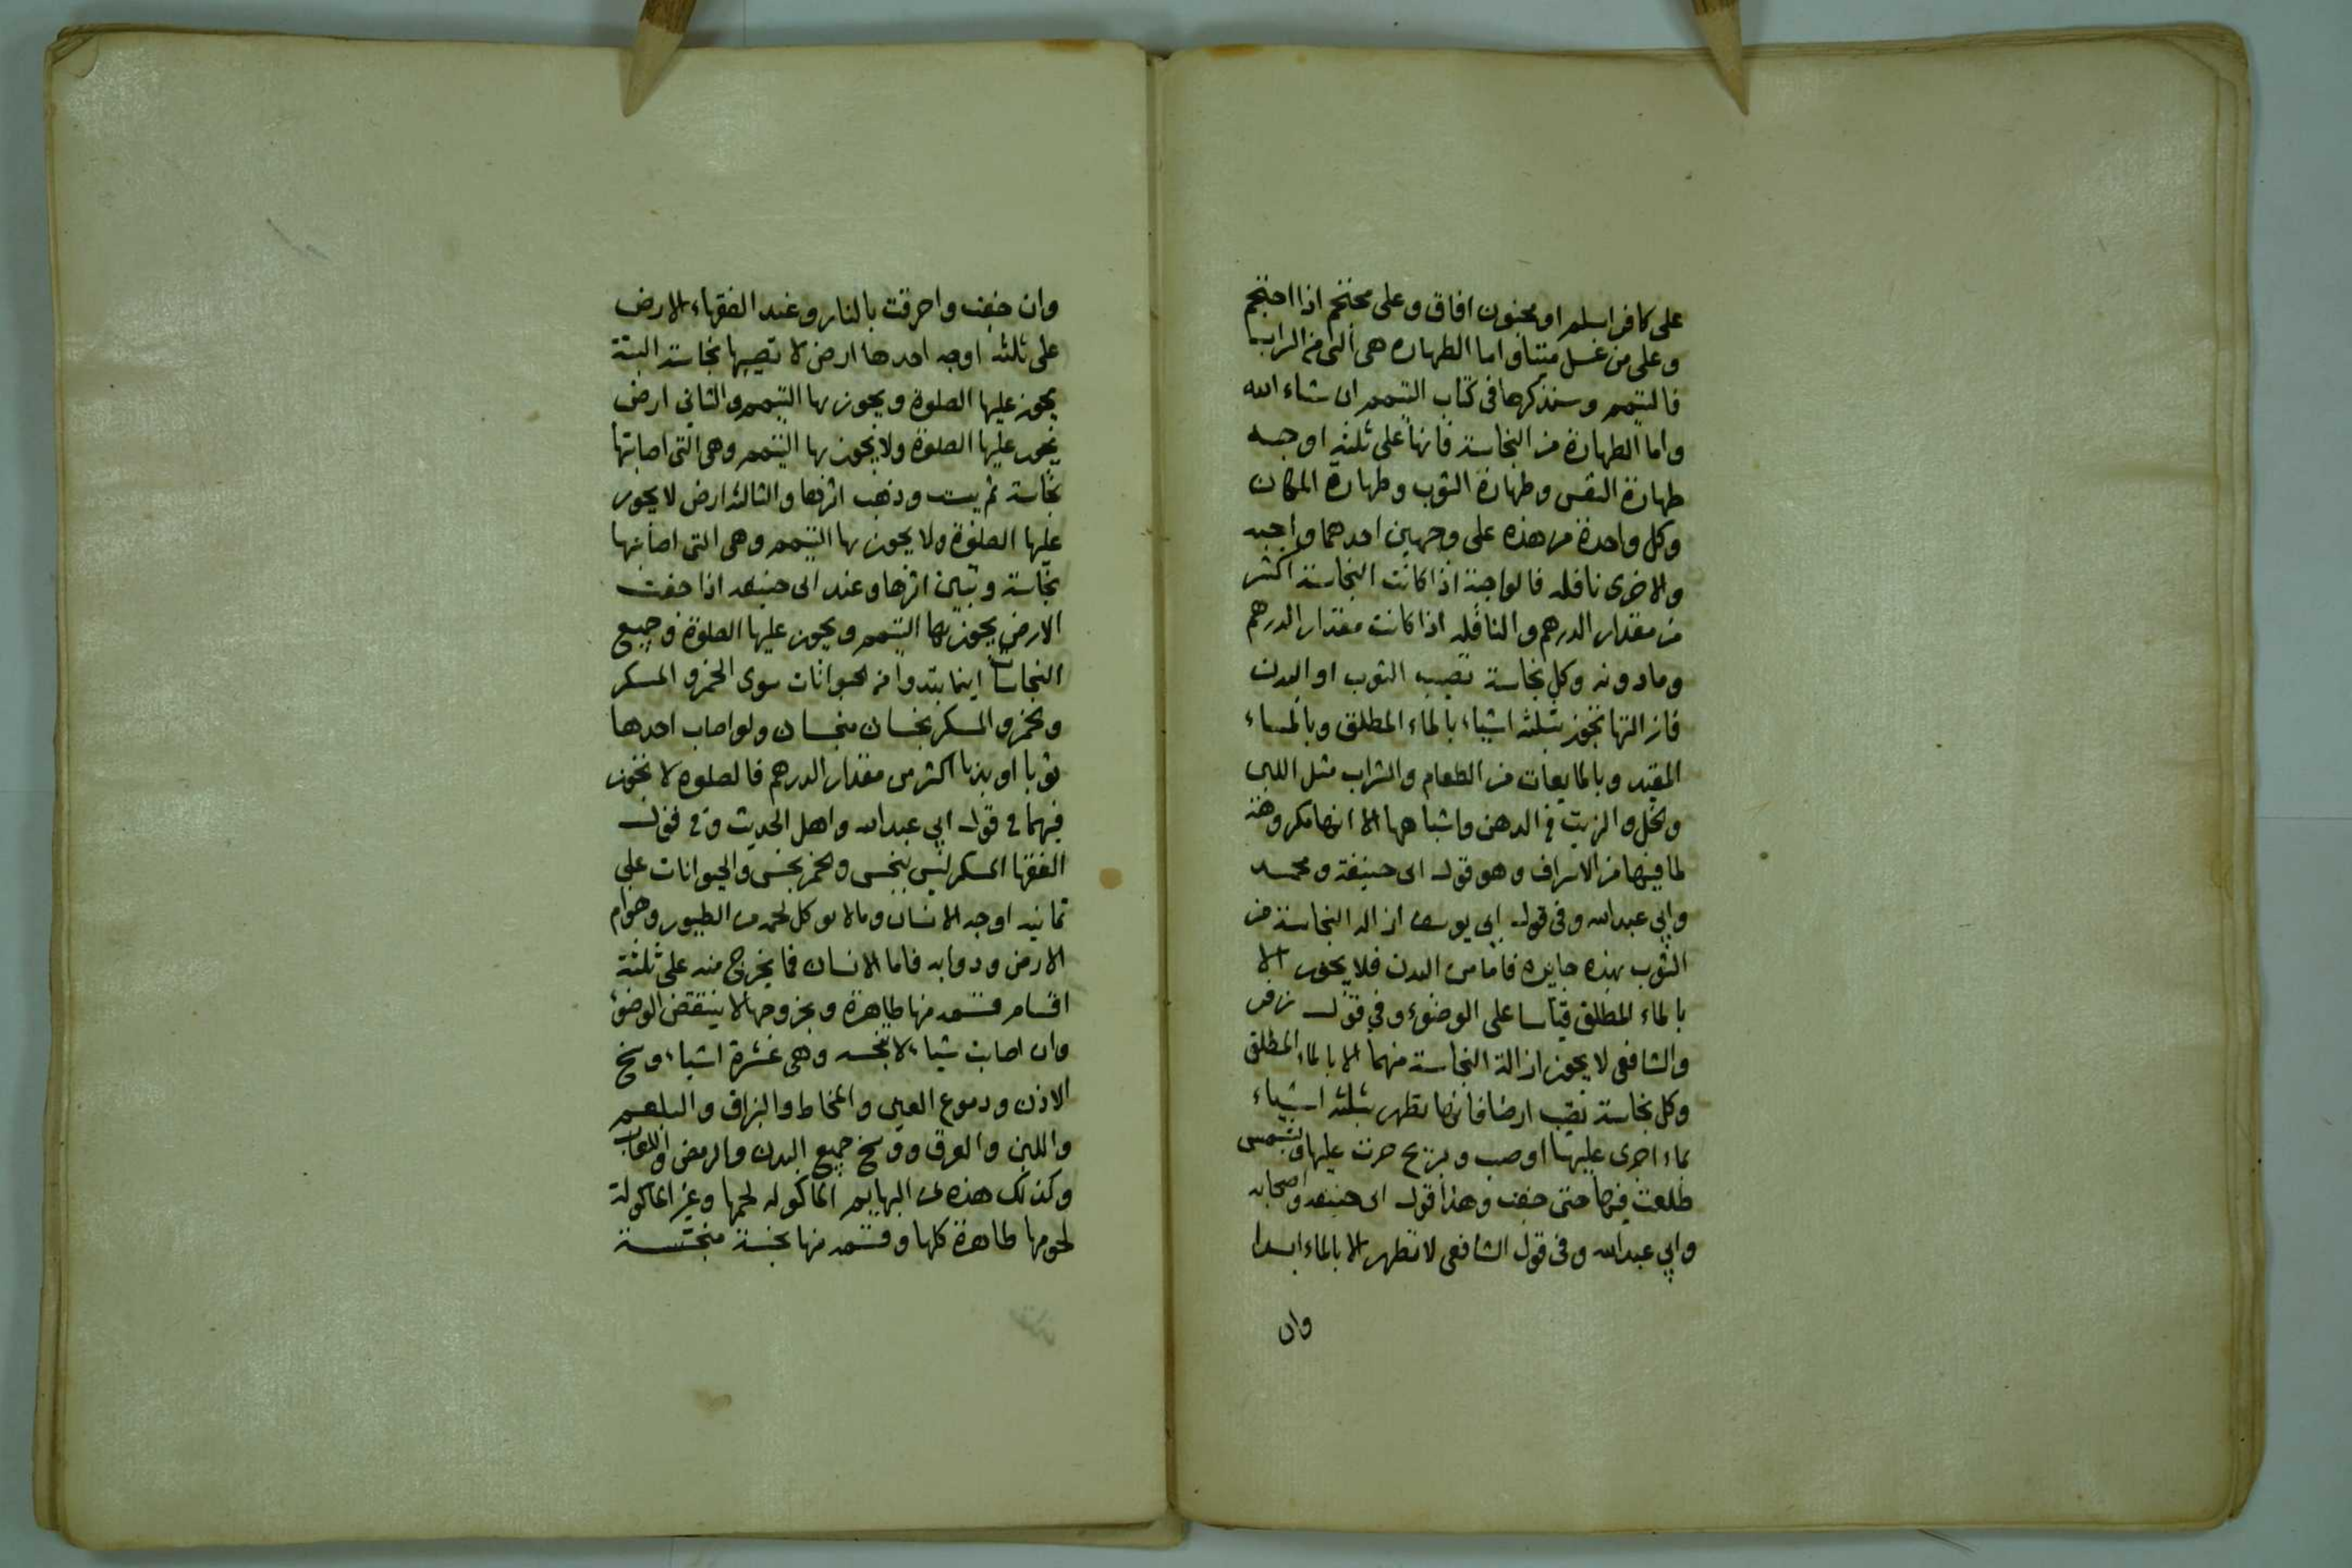 على كافر اسلم او مجنون افاق وعلى محتجم اذا احتجم
وعلى من غسل ميتا واما الطهارة هى التى من التراب
فالتيمم وسنذكرها فى كتاب التيمم ان شاء الله
واما الطهارة من النجاسة فانها على ثلثة اوجه
طهارة النفس وطهارة الثوب وطهارة المكان
وكل واحدة من هذه على وجهين احدهما واجبه
والاخرى نافله فالواجبة اذا كانت النجاسة اكثر
من مقدار الدرهم والنافله اذا كانت مقدار الدرهم
وما دونه وكل نجاسة تصيب الثوب او البدن
فازالتها تجوز بثلثه اشياء بالماء المطلق وبالماء
المقيد وبالمايعات من الطعام والشراب مثل اللبن
والخل والزيت والدهن واشباهها الا انها مكروهة
لما فيها من الاسراف وهو قول ابى حنيفة ومحمد
وابي عبدالله وفى قول ابي يوسف ازاله النجاسة من
الثوب بهذه جايزه فاما من البدن فلا يجوز الا
بالماء المطلق قياسا على الوضوء وفي قول زفر
والشافعى لا يجوز ازالة النجاسة منهما الا بالماء المطلق
وكل نجاسة تصيب ارضا فانها تطهر بثلثه اشياء
بماء اجرى عليها او صب وبريح جرت عليها وبشمس
طلعت فيها حتى جفت وهذا قول ابى حنيفه واصحابه
وابي عبدالله وفى قول الشافعى لا تطهر الا بالماء ابدا
وان
وان جفت واحرقت بالنار وعند الفقهاء الارض
على ثلثه اوجه احدها ارض لا تصيبها نجاسة البتة
يجوز عليها الصلوة ويجوز بها التيمم والثاني ارض
يجوز عليها الصلوة ولا يجوز بها التيمم وهى التى اصابتها
نجاسة ثم يبست وذهب اثرها والثالثه ارض لا يجوز
عليها الصلوة ولا يجوز بها التيمم وهى التى اصابتها
نجاسة وتبين اثرها وعند ابى حنيفه اذا جفت
الارض يجوز بها التيمم ويجوز عليها الصلوة وجميع
النجاسات انما يبتدوا من الحيوانات سوى الخمر والمسكر
والخمر والمسكر نجسان منجسان ولو اصاب احدها
ثوبا او بدنا اكثر من مقدار الدرهم فالصلوه لا تجوز
فيهما فى قول ابي عبدالله واهل الحديث وفى قول
الفقها المسكر ليس بنجس والخمر نجس والحيوانات على
ثمانيه اوجه الانسان وما لا يوكل لحمه من الطيور وهوام
الارض ودوابه فاما الانسان فما يخرج منه على ثلثة
اقسام قسم منها طاهرة وبخروجها لا ينتقض الوضوء
وان اصابت شيا لا تنجسه وهى عشرة اشياء وسخ
الاذن ودموع العين والمخاط والبزاق والبلغم
واللبن والعرق ووسخ جميع البدن والرمص واللعاب
وكذلك هذه من البهايم الماكوله لحمها وغير الماكولة
لحومها طاهرة كلها وقسم منها نجسة منجسة